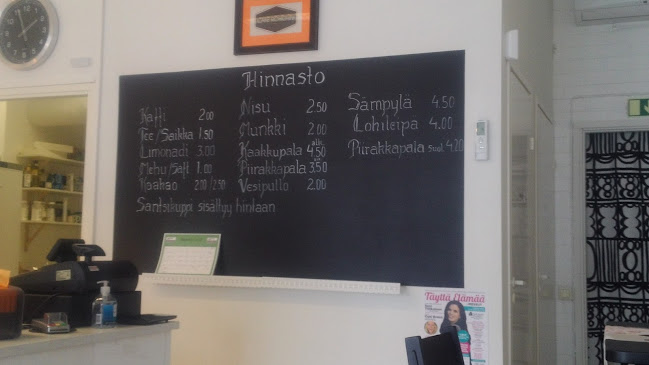 Hinnasto
Kaffi 2.00
Tee/Saikka 1.50
Limonadi 3.00
Mehu/Saft 1.00
Kaakao 2.00/2.50
Santsikuppi sisältyy hintaan
Nisu 2.50
Munkki 2.00
Kaakkupala alk. 4.50
Piirakkapala 3.50
Vesipullo 2.00
Sämpylä 4.50
Lohileipa 4.00
Piirakkapala suol. 4.20
Täyttä Elämää